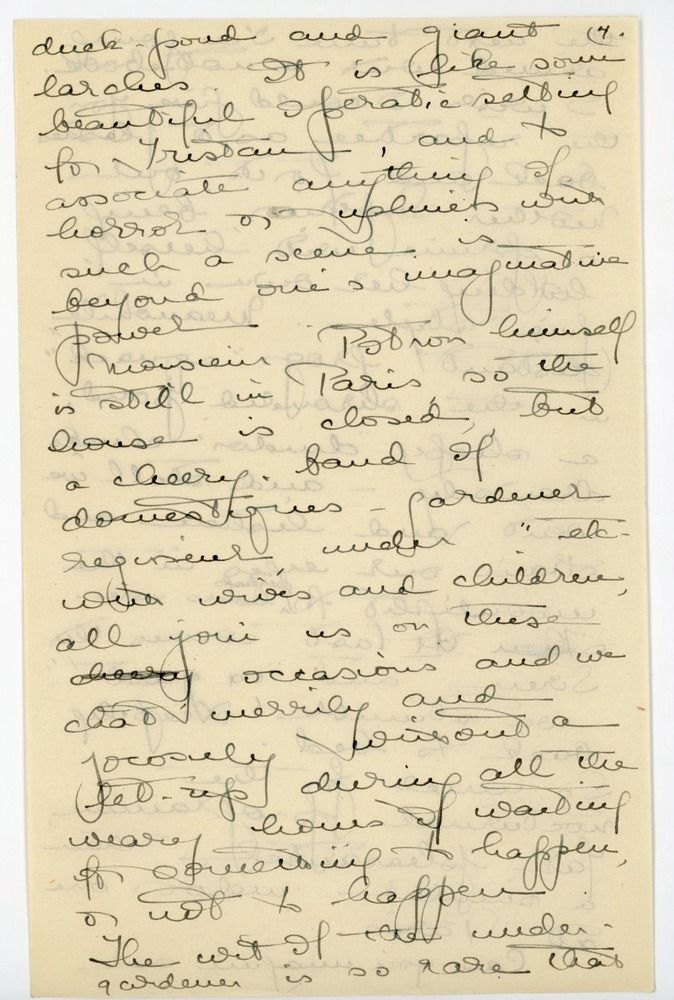 (4.
duck-pond and giant
larches. It is like some
beautiful operatic setting
for Tristan, and to
associate anything of
horror or ugliness with
such a scene is
beyond one's imaginative
power.
Monsieur Potron himself
is still in Paris, so the
house is closed, but
a cheery band of
domestiques - gardener
under
with wives and children,
all join us on these
occasions and we
chat merrily and
jocosely without a
let-up during all the
weary hours of waiting
for something to happen,
or not to happen.
The wit of the under-
gardener is so rare that